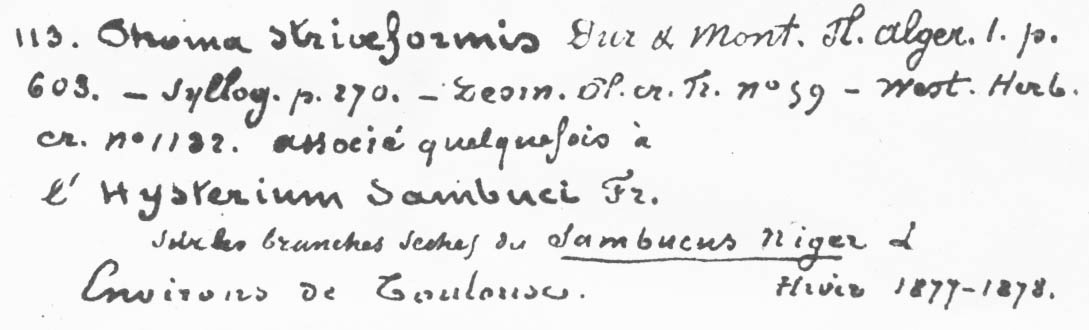 113. Phoma striæformis Dur & Mont. Fl. alger. 1. p.
603. – Syllog. p. 270. – Desm. Pl. cr. Fr. nº 59 – West. Herb.
cr. nº 1132. associé quelquefois à
l' Hysterium Sambuci Fr.
sur les branches seches du Sambucus Niger L
Environs de Toulouse. Hiver 1877-1878.